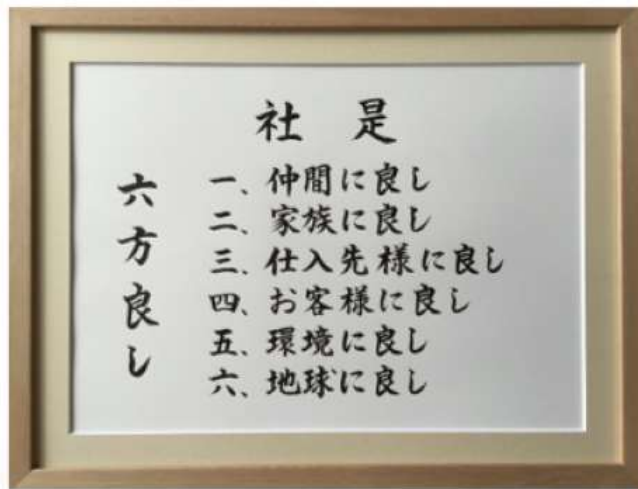 社 是
六方良し
一、仲間に良し
二、家族に良し
三、仕入先様に良し
四、お客様に良し
五、環境に良し
六、地球に良し